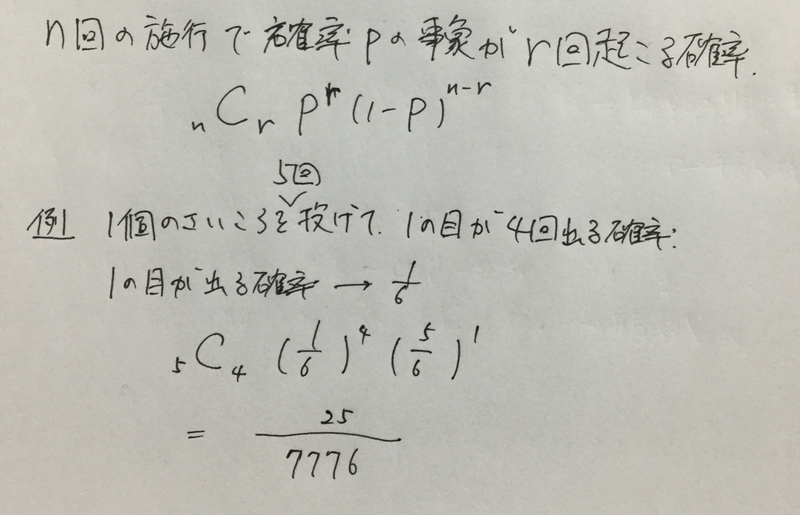 n回の施行で確率pの事象がr回起こる確率.
nCr p^r (1-p)^n-r
5回
例1 1個のさいころを投げて、1の目が4回出る確率:
1の目が出る確率 → 1/6
5C4 (1/6)^4 (5/6)^1
= 25/7776